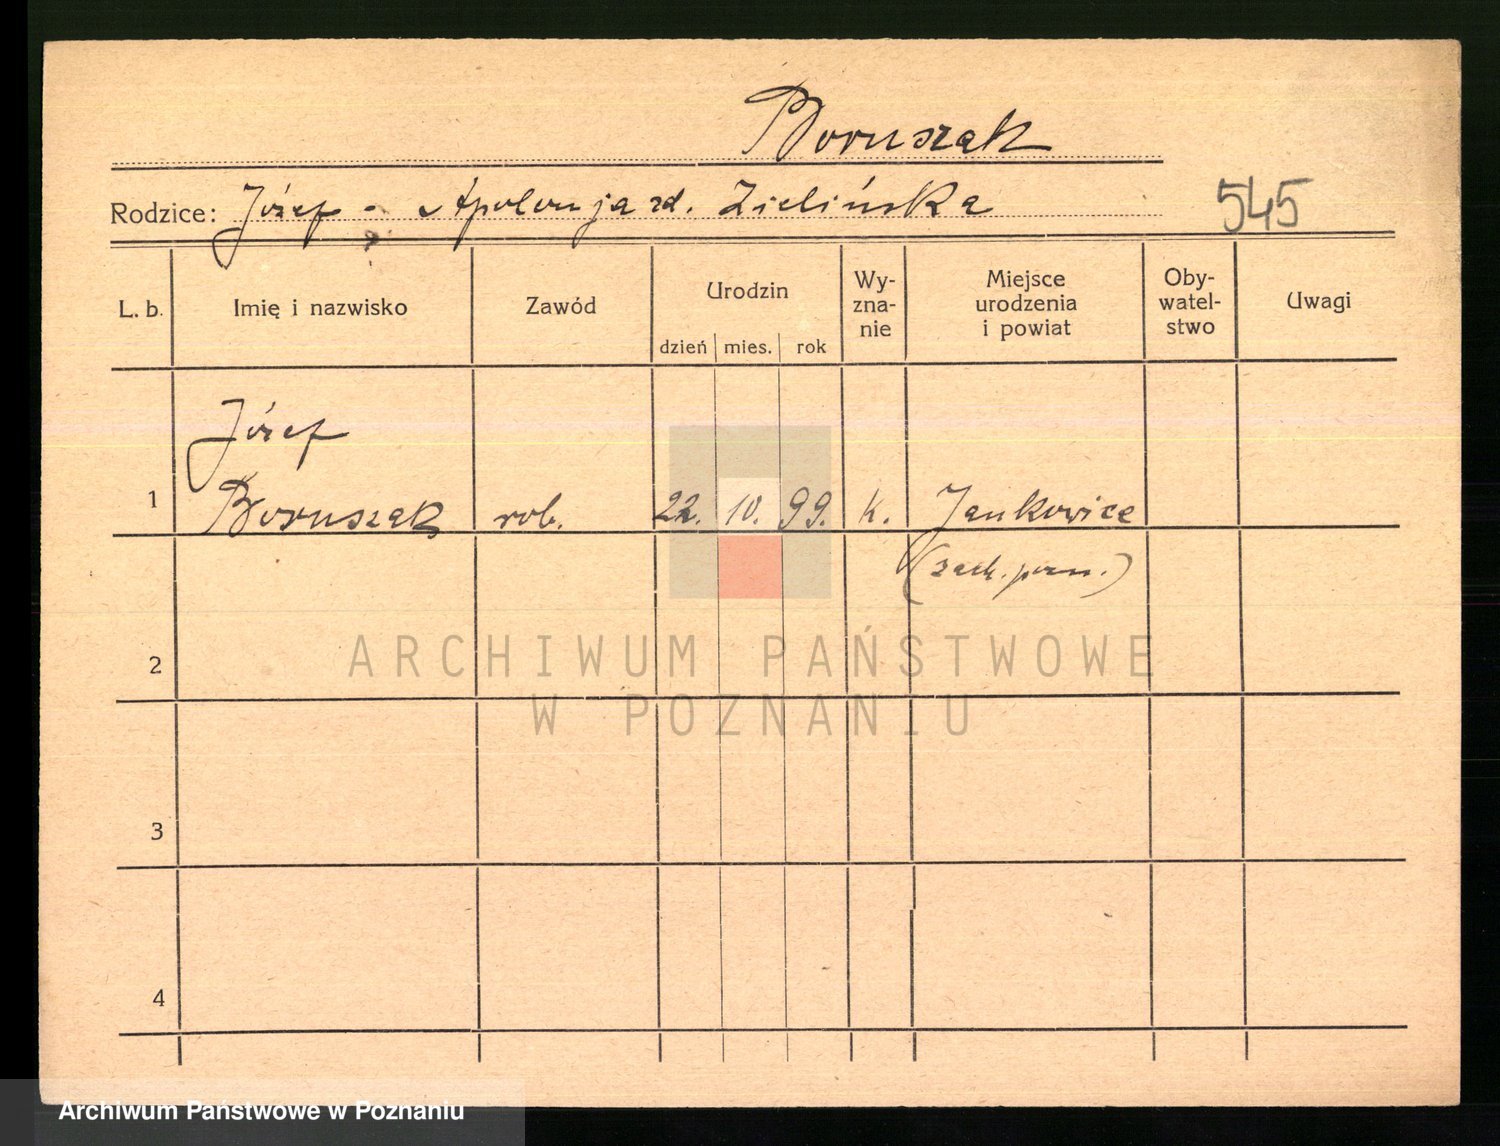 Boruszak
Rodzice: Józef - Apolonja zd. Zielińska
545
L. b. Imię i nazwisko Zawód Urodzin dzień mies. rok Wy-zna-nie Miejsce urodzenia i powiat Oby-watel-stwo Uwagi
Józef
1 Boruszak rob. 22. 10. 99. k. Jankowice
(zach. pozn.)
2
3
4
ARCHIWUM PAŃSTWOWE
W POZNANIU
Archiwum Państwowe w Poznaniu